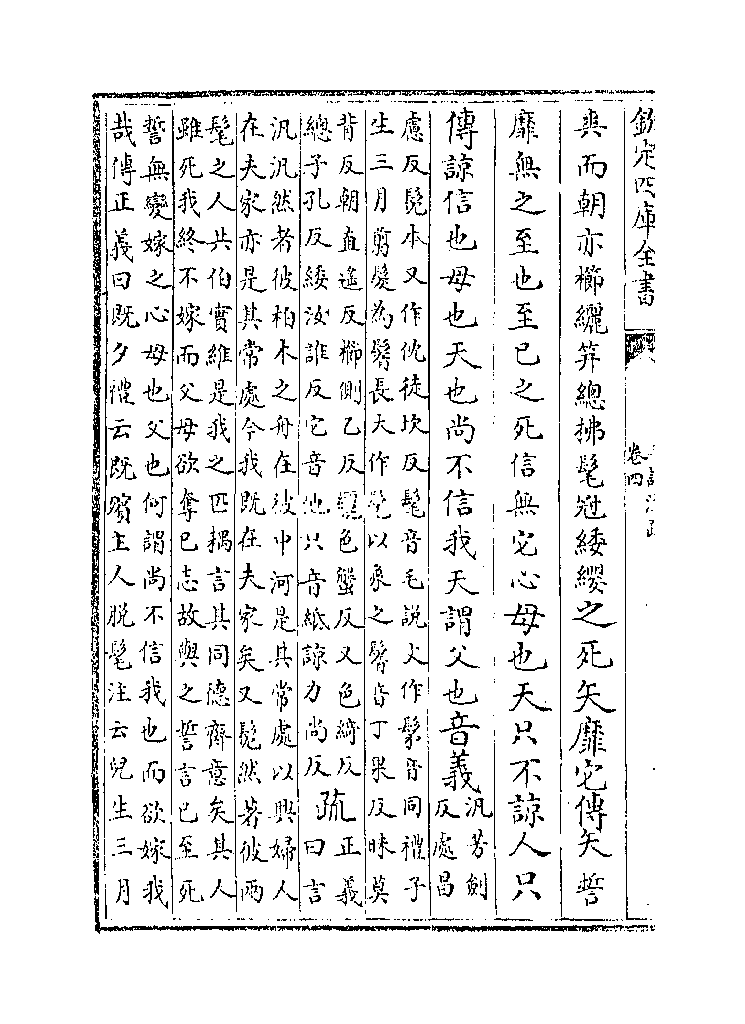 欽定四庫全書
卷四
爽而朝亦櫛纚笄總拂髦冠緌纓之死矢靡它傳矢誓
靡無之至也至已之死信無它心母也天只不諒人只
傳諒信也母也天也尚不信我天謂父也音義汎芳劍
反處昌
慮反髧本又作忱徒坎反髦音毛說文作髳音同禮子
生三月翦髮為鬌長大作髦以象之鬌音丁果反昧莫
背反朝直遙反櫛側乙反纚色蟹反又色綺反
總子孔反緌汝誰反它音他只音紙諒力尚反
疏正義
曰言
汎汎然者彼柏木之舟在彼中河是其常處以興婦人
在夫家亦是其常處今我既在夫家矣又髧然著彼兩
髦之人共伯實維是我之匹耦言其同德齊意矣其人
雖死我終不嫁而父母欲奪已志故與之誓言已至死
誓無變嫁之心母也父也何謂尚不信我也而欲嫁我
哉傳正義曰既夕禮云既殯主人脫髦注云兒生三月